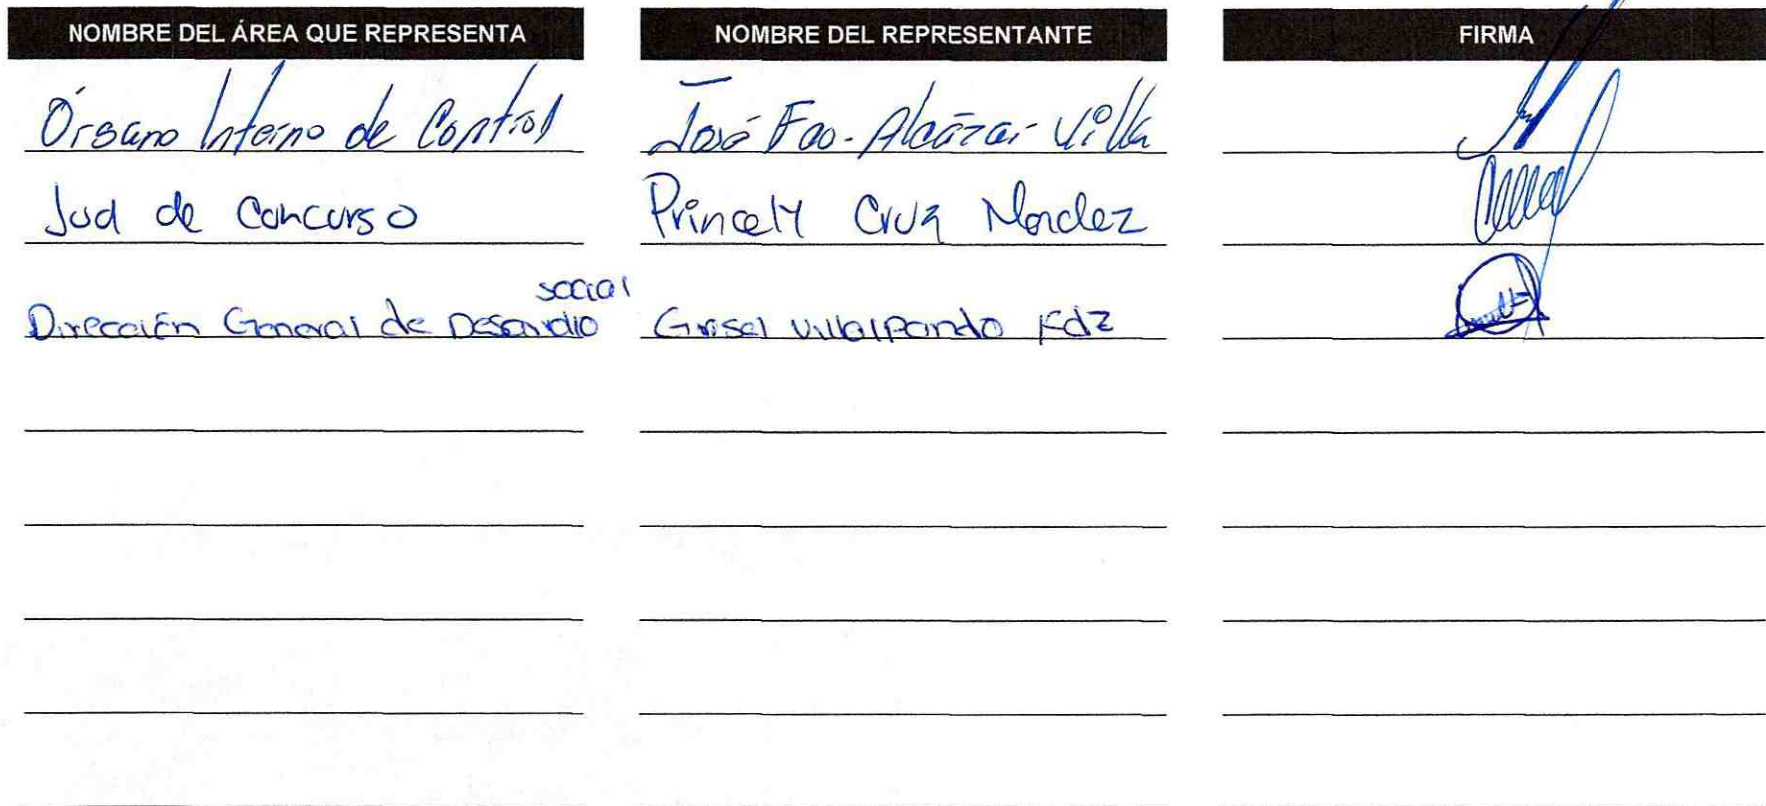 NOMBRE DEL ÁREA QUE REPRESENTA NOMBRE DEL REPRESENTANTE FIRMA
Órgano Interno de Control José Fco. Alcázar Villa
Jud de Concurso Princely Cruz Mendez
social
Dirección General de Desarrollo Grisel Villalpando Fdz